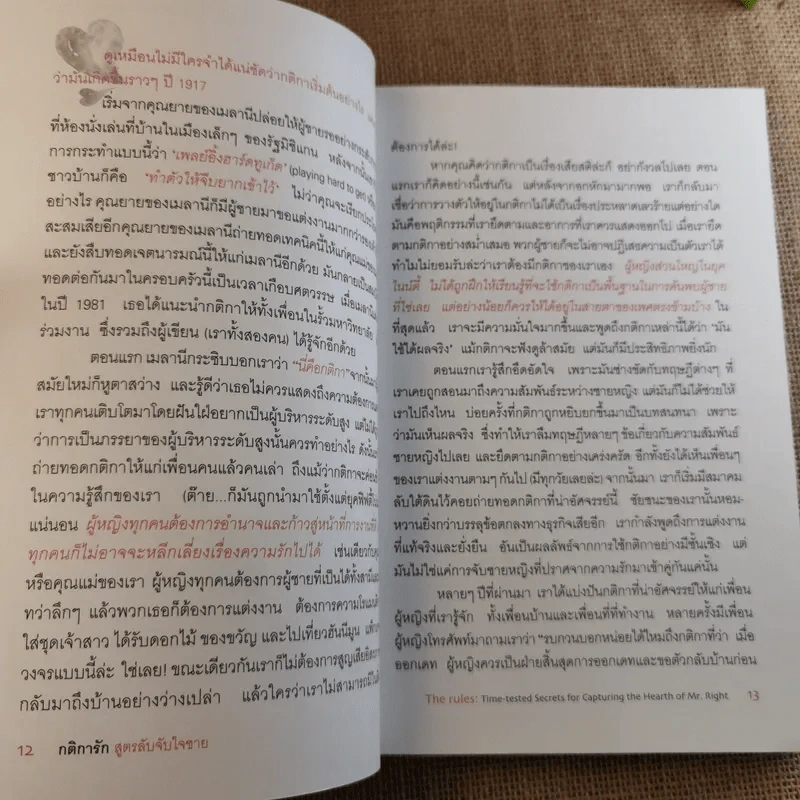 ดูเหมือนไม่มีใครจำได้แน่ชัดว่ากติกาเริ่มต้นอย่างไร
ว่ามันเกิดขึ้นราวๆ ปี 1917
เริ่มจากคุณยายของเมลานีปล่อยให้ผู้ชายรออย่าง
ที่ห้องนั่งเล่นที่บ้านในเมืองเล็กๆ ของรัฐมิชิแกน หลังจากนั้น
การกระทำแบบนี้ว่า 'เพลย์อิ้งฮาร์ดทูเก็ต' (playing hard to get)
ชาวบ้านก็คือ 'ทำตัวให้จีบยากเข้าไว้' ไม่ว่าคุณจะเรียก
อย่างไร คุณยายของเมลานีก็มีผู้ชายมาขอแต่งงานมากกว่า
สะสมเสียอีกคุณยายของเมลานีถ่ายทอดเทคนิคนี้ให้แก่คุณแม่ของ
และยังสืบทอดเจตนารมณ์นี้ให้แก่เมลานีอีกด้วย มันกลายเป็น
ทอดต่อกันมาในครอบครัวนี้เป็นเวลาเกือบศตวรรษ เมื่อเมลานี
ในปี 1981 เธอได้แนะนำกติกาให้ทั้งเพื่อนในรั้วมหาวิทยาลัย
ร่วมงาน ซึ่งรวมถึงผู้เขียน (เราทั้งสองคน) ได้รู้จักอีกด้วย
ตอนแรก เมลานีกระซิบบอกเราว่า "นี่คือกติกา" จากนั้น
สมัยใหม่ก็หูตาสว่าง และรู้ดีว่าเธอไม่ควรแสดงถึงความต้องการ
เราทุกคนเติบโตมาโดยฝันใฝ่อยากเป็นผู้บริหารระดับสูง แต่ไม่ได้
ว่าการเป็นภรรยาของผู้บริหารระดับสูงนั้นควรทำอย่างไร ดังนั้น
ถ่ายทอดกติกาให้แก่เพื่อนคนแล้วคนเล่า ถึงแม้ว่ากติกาจะค่อน
ในความรู้สึกของเรา (ต๊าย...ก็มันถูกนำมาใช้ตั้งแต่ยุคฟิฟตี้
แน่นอน ผู้หญิงทุกคนต้องการอำนาจและก้าวสู่หน้าที่การงานที่ดี
ทุกคนก็ไม่อาจจะหลีกเลี่ยงเรื่องความรักไปได้ เช่นเดียวกับ
หรือคุณแม่ของเรา ผู้หญิงทุกคนต้องการผู้ชายที่เป็นได้ทั้งสามี
ทว่าลึกๆ แล้วพวกเธอก็ต้องการแต่งงาน ต้องการความโรแมนติก
ใส่ชุดเจ้าสาว ได้รับดอกไม้ ของขวัญ และไปเที่ยวฮันนีมูน
วงจรแบบนี้ล่ะ ใช่เลย! ขณะเดียวกันเราก็ไม่ต้องการสูญเสียอิสระ
กลับมาถึงบ้านอย่างว่างเปล่า แล้วใครว่าเราไม่สามารถมี
12 กติการัก สูตรลับจับใจชาย
ต้องการได้ล่ะ!
หากคุณคิดว่ากติกาเป็นเรื่องเสียสติล่ะก็ อย่ากังวลไปเลย ตอน
แรกเราก็คิดอย่างนี้เช่นกัน แต่หลังจากอกหักมามากพอ เราก็กลับมา
เชื่อว่าการวางตัวให้อยู่ในกติกาไม่ได้เป็นเรื่องประหลาดเลวร้ายแต่อย่างใด
มันคือพฤติกรรมที่เรายึดตามและอาการที่เราควรแสดงออกไป เมื่อเรายึด
ตามกติกาอย่างสม่ำเสมอ พวกผู้ชายก็จะไม่อาจปฏิเสธความเป็นตัวเราได้
ทำไมไม่ยอมรับล่ะว่าเราต้องมีกติกาของเราเอง ผู้หญิงส่วนใหญ่ในยุค
ไนน์ตี้ ไม่ได้ถูกฝึกให้เรียนรู้ที่จะใช้กติกาเป็นพื้นฐานในการค้นพบผู้ชาย
ที่ใช่เลย แต่อย่างน้อยก็ควรให้ได้อยู่ในสายตาของเพศตรงข้ามบ้าง ใน
ที่สุดแล้ว เราจะมีความมั่นใจมากขึ้นและพูดถึงกติกาเหล่านี้ได้ว่า 'มัน
ใช้ได้ผลจริง' แม้กติกาจะฟังดูล้าสมัย แต่มันก็มีประสิทธิภาพยิ่งนัก
ตอนแรกเรารู้สึกอึดอัดใจ เพราะมันช่างขัดกับทฤษฎีต่างๆ ที่
เราเคยถูกสอนมาถึงความสัมพันธ์ระหว่างชายหญิง แต่มันก็ไม่ได้ช่วยให้
เราไปถึงไหน บ่อยครั้งที่กติกาถูกหยิบยกขึ้นมาเป็นบทสนทนา เพราะ
ว่ามันเห็นผลจริง ซึ่งทำให้เราลืมทฤษฎีหลายๆ ข้อเกี่ยวกับความสัมพันธ์
ชายหญิงไปเลย และยึดตามกติกาอย่างเคร่งครัด อีกทั้งยังได้เห็นเพื่อนๆ
ของเราแต่งงานตามๆ กันไป (มีทุกวัยเลยล่ะ) จากนั้นมา เราก็เริ่มมีสมาคม
ลับใต้ดินไว้คอยถ่ายทอดกติกาที่น่าอัศจรรย์นี้ ชัยชนะของเรานั้นหอม-
หวานยิ่งกว่าบรรลุข้อตกลงทางธุรกิจเสียอีก เรากำลังพูดถึงการแต่งงาน
ที่แท้จริงและยั่งยืน อันเป็นผลลัพธ์จากการใช้กติกาอย่างมีชั้นเชิง แต่
มันไม่ใช่แค่การจับชายหญิงที่ปราศจากความรักมาเข้าคู่กันแค่นั้น
หลายๆ ปีที่ผ่านมา เราได้แบ่งปันกติกาที่น่าอัศจรรย์ให้แก่เพื่อน
ผู้หญิงที่เรารู้จัก ทั้งเพื่อนบ้านและเพื่อนที่ที่ทำงาน หลายครั้งมีเพื่อน
ผู้หญิงโทรศัพท์มาถามเราว่า "รบกวนบอกหน่อยได้ไหมถึงกติกาที่ว่า เมื่อ
ออกเดท ผู้หญิงควรเป็นฝ่ายสิ้นสุดการออกเดทและขอตัวกลับบ้านก่อน
The rules: Time-tested Secrets for Capturing the Hearth of Mr. Right 13